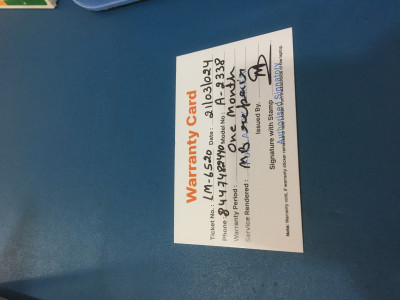 Warranty Card
Ticket No.: LM-6520 Date: 21/03/024
Phone: 8447482440 Model No.: A-2338
Warranty Period: One Month
Service Rendered: M.B
Issued By.
Signature with Stamp
Authorised Signatory
Note: Warranty void, if warranty sticker